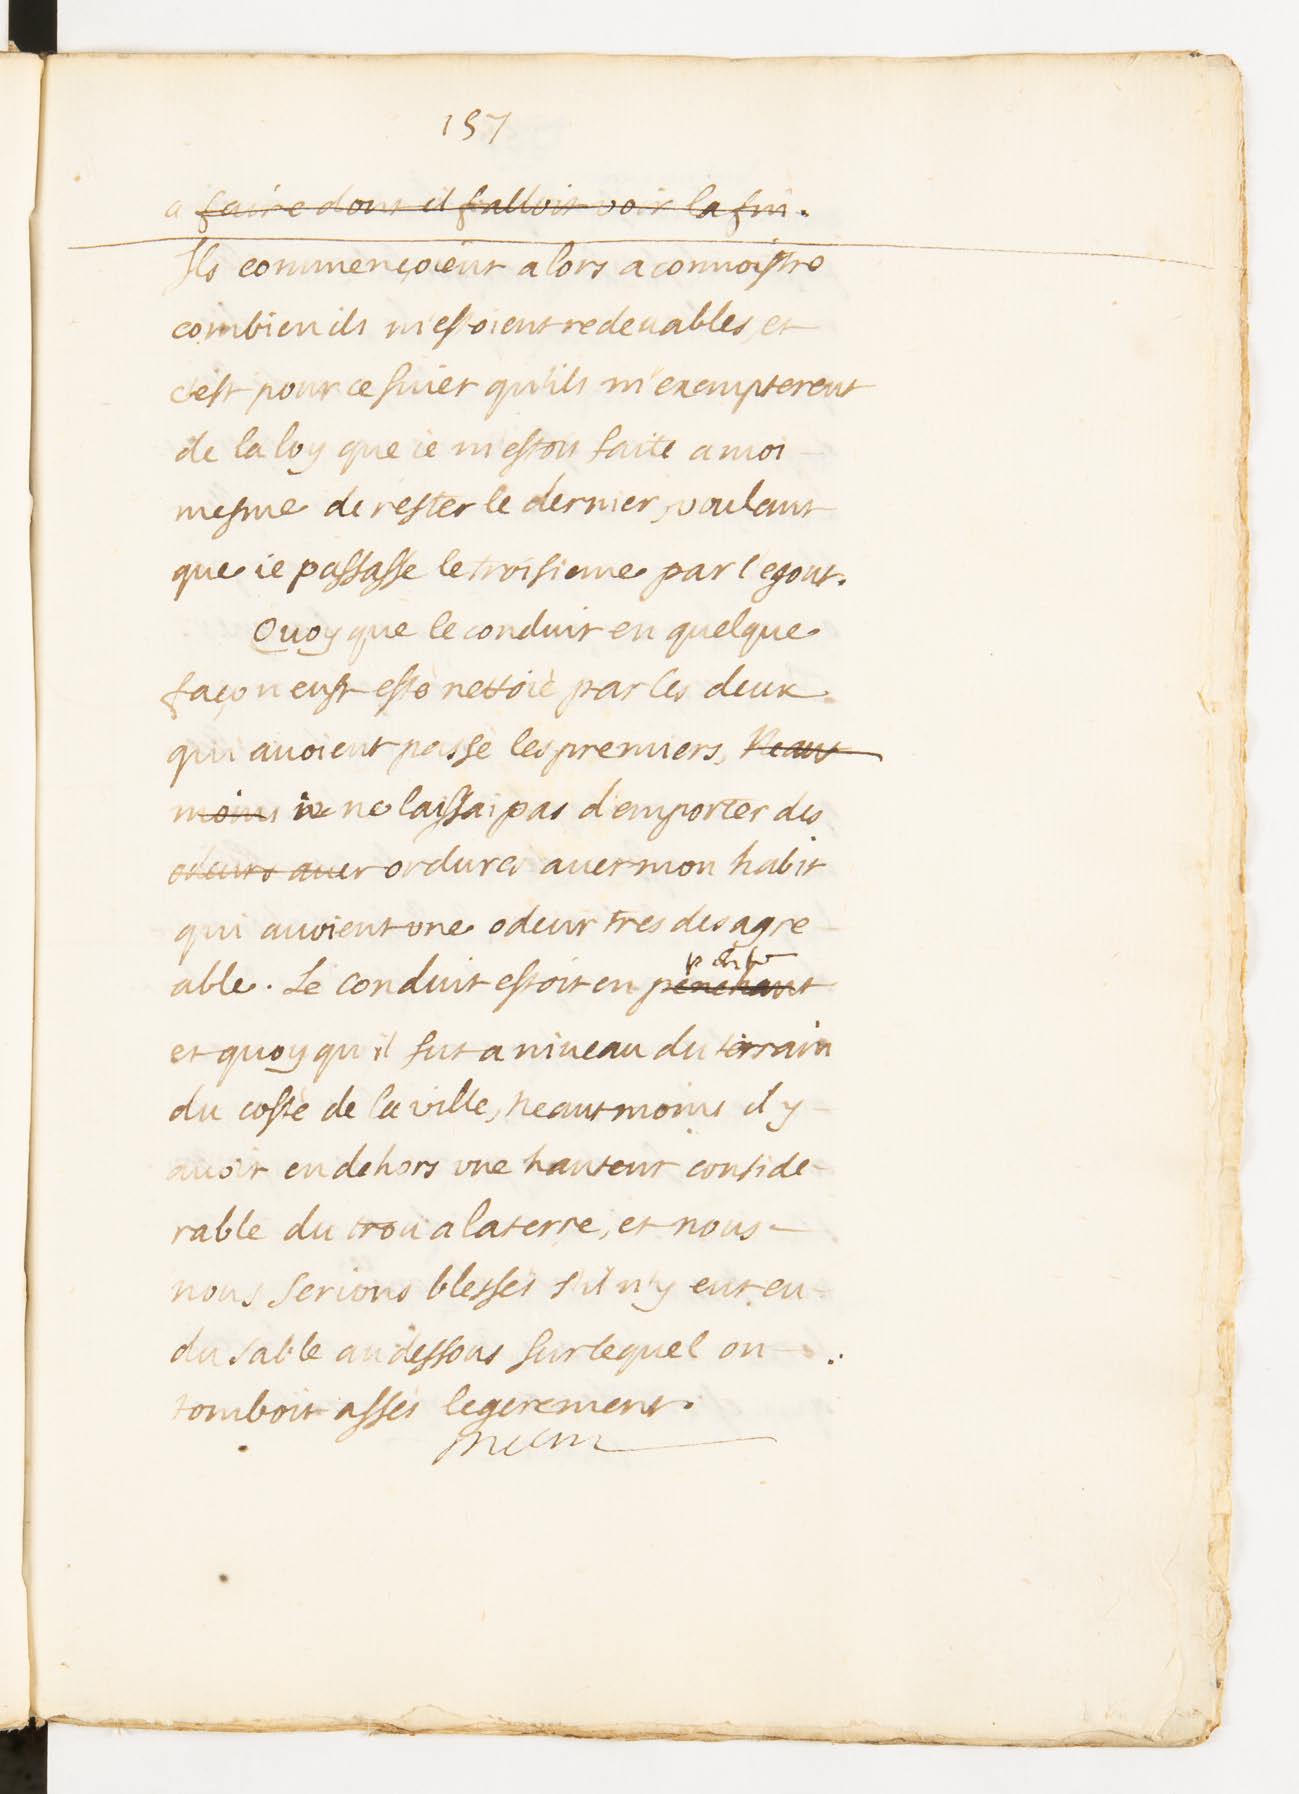 157
a faire dont il falloit voir la fin.
Ils commençoient alors a connoistre
combien ils m'estoient redeuables, et
c'est pour ce suiet qu'ils m'exempterent
de la loy que ie m'estois faite a moi
mesme de rester le dernier, voulant
que ie passasse le troisieme par l'egout.
Quoyque le conduit en quelque
façon eust esté nettoié par les deux
qui auoient passé les premiers, neant
moins ie ne laissai pas d'emporter des
odeurs auec ordures auec mon habit
qui auoient vne odeur tres desagre
able. Le conduit estoit en penchant
pente
et quoyqu'il fut a niueau du terrain
du costé de la ville, neautmoins il y
auoit en dehors vne hauteur conside-
rable du trou a la terre, et nous
nous serions blessés s'il n'y eut eu
du sable audessous sur lequel on
tomboit assés legerement.